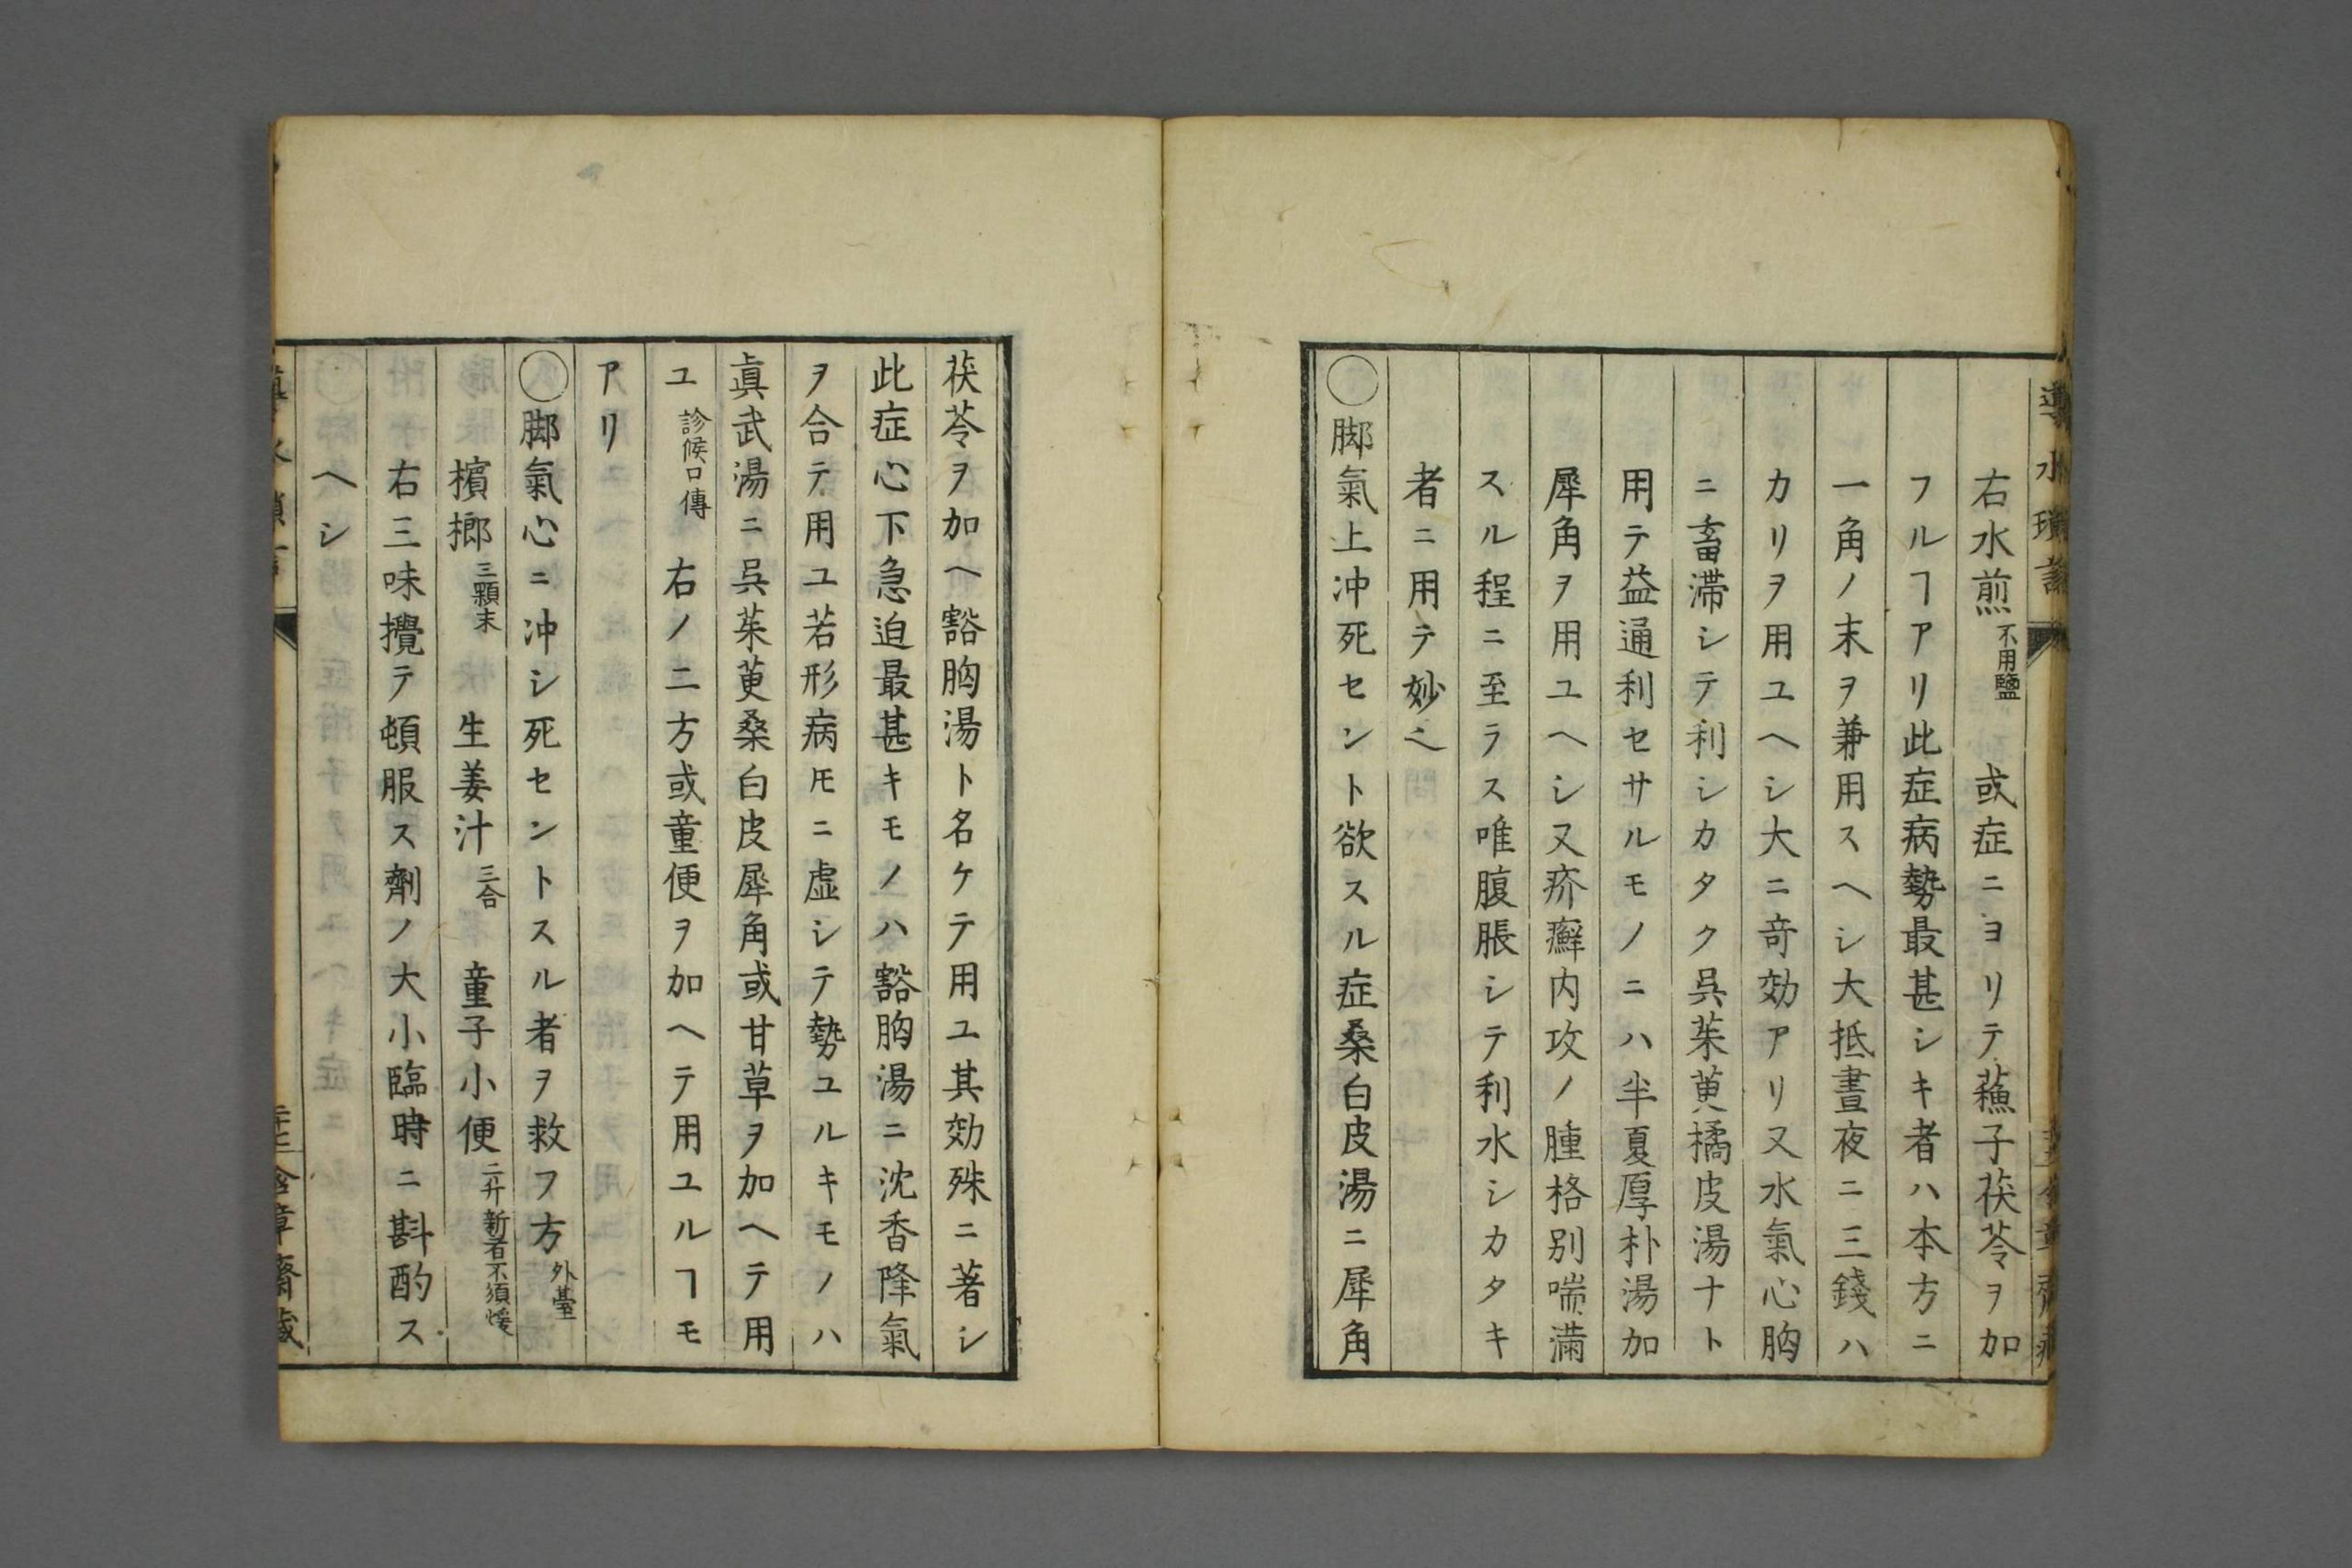 導水瑣言
右水煎 不用鹽 或症ニヨリテ蘓子茯苓ヲ加
フルヿアリ此症病勢最甚シキ者ハ本方ニ
一角ノ末ヲ兼用スヘシ大抵晝夜ニ三錢ハ
カリヲ用ユヘシ大ニ奇効アリ又水氣心胸
ニ畜滞シテ利シカタク呉茱萸橘皮湯ナト
用テ益通利セサルモノニハ半夏厚朴湯加
犀角ヲ用ユヘシ又疥癬内攻ノ腫格別喘滿
スル程ニ至ラス唯腹脹シテ利水シカタキ
者ニ用テ妙也
◯脚氣上冲死セント欲スル症桑白皮湯ニ犀角
茯苓ヲ加ヘ豁胸湯ト名ケテ用ユ其効殊ニ著シ
此症心下急迫最甚キモノハ豁胸湯ニ沈香降氣
ヲ合テ用ユ若形病𪜈ニ虚シテ勢ユルキモノハ
眞武湯ニ呉茱萸桑白皮犀角或甘草ヲ加ヘテ用
ユ 診候口傳 右ノ二方或童便ヲ加ヘテ用ユルヿモ
アリ
◯脚氣心ニ冲シ死セントスル者ヲ救フ方 外臺
檳榔 三顆末 生姜汁 三合 童子小便 二升 新者不須煖
右三味攪テ頓服ス劑ノ大小臨時ニ斟酌ス
ヘシ